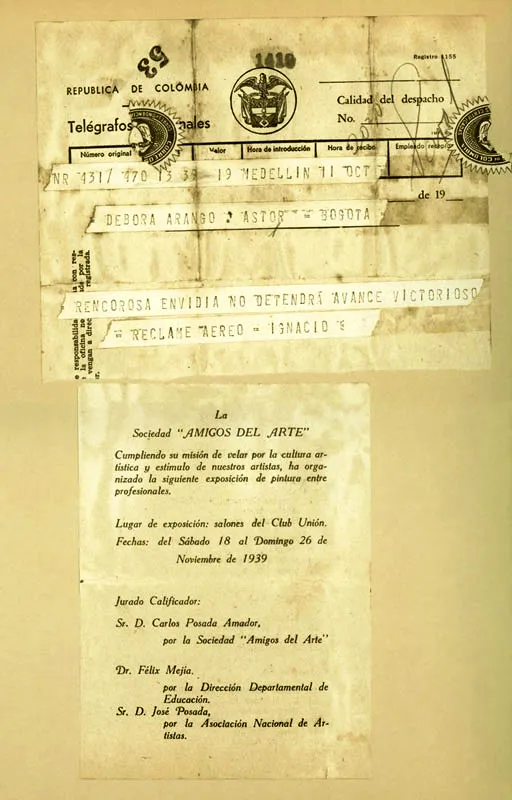 53
1410
Registro 1155
REPUBLICA DE COLOMBIA
Calidad del despacho
Telégrafos nales
No.
Número original Valor Hora de introducción Hora de recibo Empleado
NR 431/ 470 13 39 19 MEDELLIN 11 OCT
de 19
DEBORA ARANGO ASTOR = BOGOTA
RENCOROSA ENVIDIA NO DETENDRÁ AVANCE VICTORIOSO
= RECLAME AEREO = IGNACIO
e responsabilida a con res-
la oficina ne de por la
vengan a direc registrada.
r.
La
Sociedad "AMIGOS DEL ARTE"
Cumpliendo su misión de velar por la cultura ar-
tística y estímulo de nuestros artistas, ha orga-
nizado la siguiente exposición de pintura entre
profesionales.
Lugar de exposición: salones del Club Unión.
Fechas: del Sábado 18 al Domingo 26 de
Noviembre de 1939
Jurado Calificador:
Sr. D. Carlos Posada Amador,
por la Sociedad "Amigos del Arte"
Dr. Félix Mejía.
por la Dirección Departamental de
Educación.
Sr. D. José Posada,
por la Asociación Nacional de Ar-
tistas.